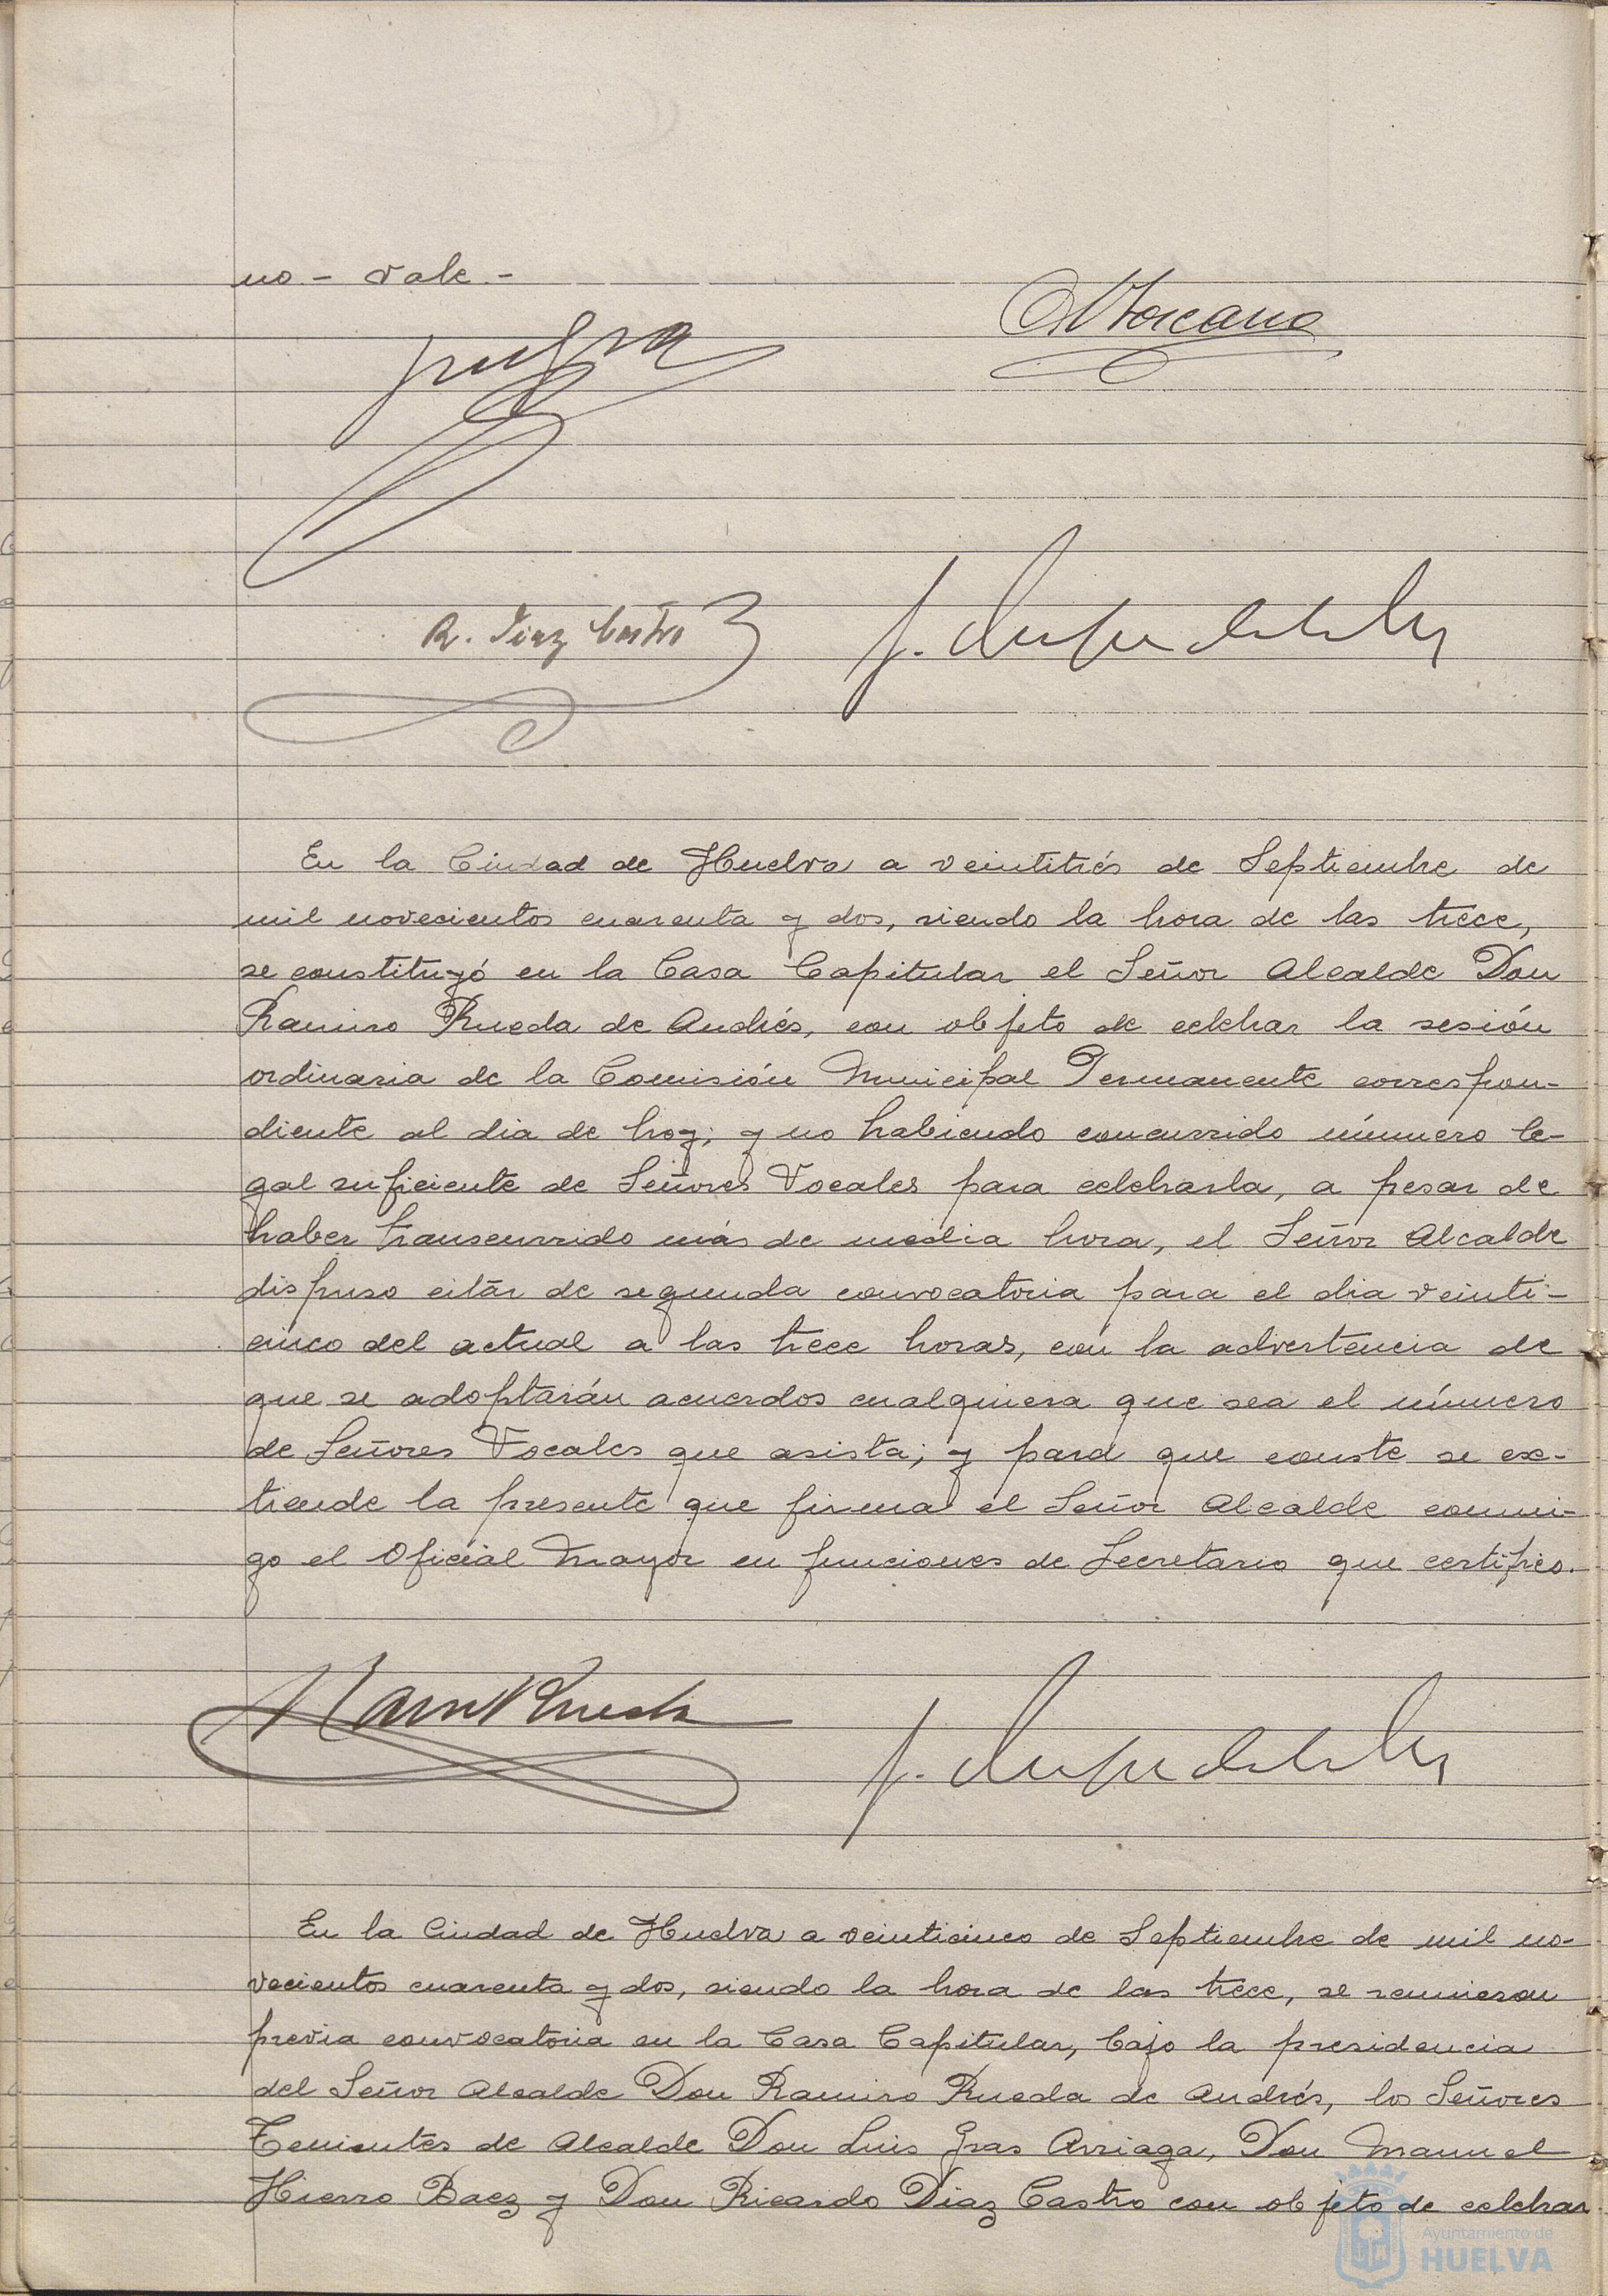 no - vale. -
R. Diaz Castro
En la Ciudad de Huelva a veintitrés de Septiembre de
mil novecientos cuarenta y dos, siendo la hora de las trece,
se constituyó en la Casa Capitular el Señor Alcalde Don
Ramiro Rueda de Andrés, con objeto de celebrar la sesión
ordinaria de la Comisión Municipal Permanente correspon-
diente al dia de hoy; y no habiendo concurrido número le-
gal suficiente de Señores Vocales para celebrarla, a pesar de
haber transcurrido más de media hora, el Señor Alcalde
dispuso citar de segunda convocatoria para el dia veinti-
cinco del actual a las trece horas, con la advertencia de
que se adoptarán acuerdos cualquiera que sea el número
de Señores Vocales que asista; y para que conste se ex-
tiende la presente que firma el Señor Alcalde conmi-
go el Oficial Mayor en funciones de Secretario que certifico.
Ram Rueda
En la Ciudad de Huelva a veinticinco de Septiembre de mil no-
vecientos cuarenta y dos, siendo la hora de las trece, se reunieron
previa convocatoria en la Casa Capitular, bajo la presidencia
del Señor Alcalde Don Ramiro Rueda de Andrés, los Señores
Tenientes de Alcalde Don Luis Gras Arriaga, Don Manuel
Hierro Baez y Don Ricardo Diaz Castro con objeto de celebrar
Ayuntamiento de
HUELVA